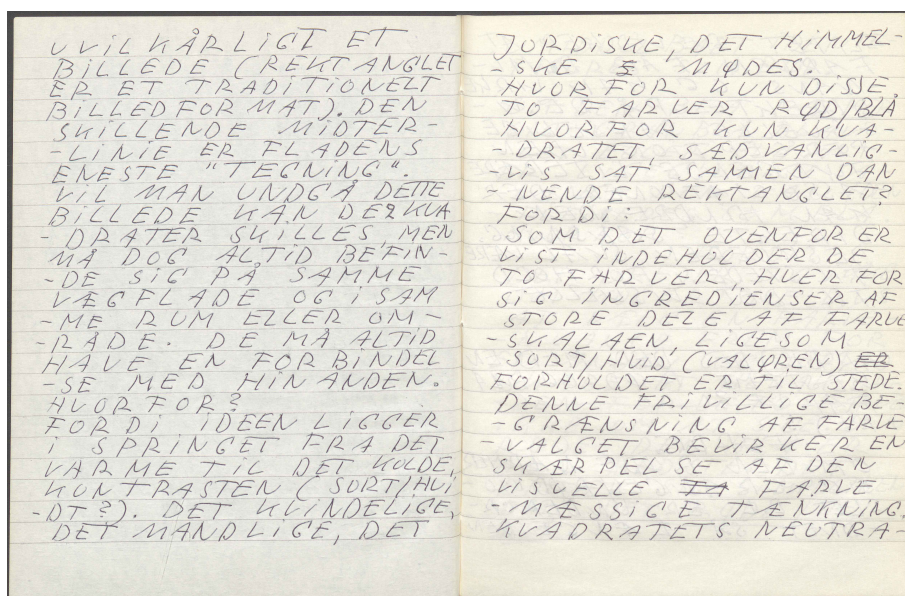 UVILKÅRLIGT ET
BILLEDE (REKTANGLET
ER ET TRADITIONELT
BILLEDFORMAT). DEN
SKILLENDE MIDTER-
-LINIE ER FLADENS
ENESTE "TEGNING".
VIL MAN UNDGÅ DETTE
BILLEDE KAN DE 2 KVA
-DRATER SKILLES, MEN
MÅ DOG ALTID BEFIN-
-DE SIG PÅ SAMME
VÆGFLADE OG I SAM
-ME RUM ELLER OM-
-RÅDE. DE MÅ ALTID
HAVE EN FORBINDEL
-SE MED HINANDEN.
HVORFOR?
FORDI IDEEN LIGGER
I SPRINGET FRA DET
VARME TIL DET KOLDE,
KONTRASTEN (SORT/HVI
-DT?). DET KVINDELIGE,
DET MANDLIGE, DET
JORDISKE, DET HIMMEL-
-SKE S MØDES.
HVORFOR KUN DISSE
TO FARVER RØD/BLÅ
HVORFOR KUN KVA-
-DRATET, SÆDVANLIG-
-VIS SAT SAMMEN DAN
-NENDE REKTANGLET?
FORDI:
SOM DET OVENFOR ER
VIST INDEHOLDER DE
TO FARVER, HVER FOR
SIG INGREDIENSER AF
STORE DELE AF FARVE
-SKALAEN, LIGESOM
SORT/HVID (VALØREN) ER
FORHOLDET ER TIL STEDE.
DENNE FRIVILLIGE BE-
-GRÆNSNING AF FARVE
-VALGET BEVIRKER EN
SKÆRPELSE AF DEN
VISUELLE FA FARVE
-MÆSSIGE TÆNKNING.
KVADRATETS NEUTRA-